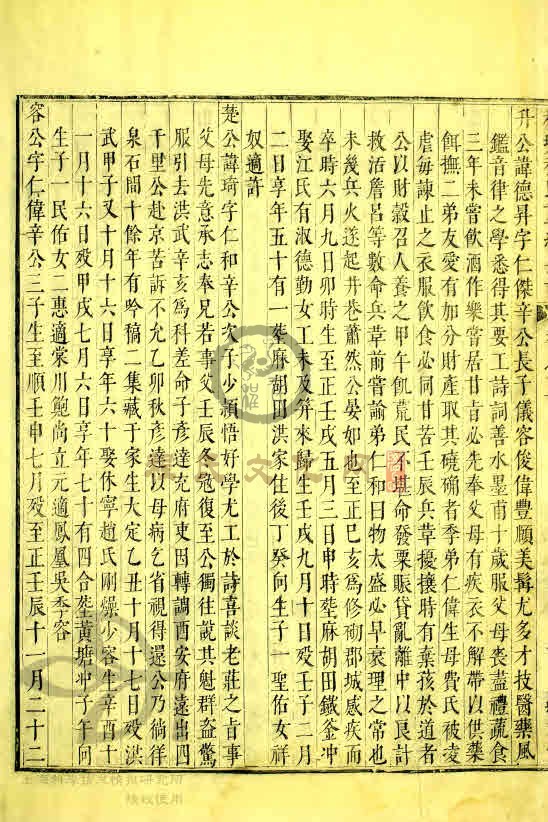 升公諱德昇字仁傑辛公長子儀容俊偉豐順美髯尤多才技醫藥風
鑑音律之學悉得其要工詩詞善水墨甫十歲服父母喪盡禮蔬食
三年未嘗飲酒作樂嘗居甘旨必先奉父母有疾衣不解帶以俱藥
餌撫二弟友愛有加分財產取其磽确者季弟仁偉生母費氏被凌
虐每諫止之衣服飲食必同甘苦壬辰兵草擾攘時有棄孩於道者
公以財穀召人養之甲午飢荒民不堪命發粟賑貸亂離中以艮計
救活詹呂等數命兵草前嘗諭弟仁和曰物太盛必早衰理之常也
未幾兵火遂起井巷蕭然公晏如也至正巳亥爲修砌郡城感疾而
卒時六月九日卯時生至正壬戌五月三日申時塟麻胡田鐵釜冲
娶江氏有淑德勤女工未及笄來歸生壬戌九月十日歿壬子二月
二日享年五十有一塟麻胡田洪家住後丁癸向生子一聖佑女祥
奴適許
楚公諱琦字仁和辛公次子少穎悟好學尤工於詩喜談老莊之旨事
父母先意承志奉兄若事父壬辰冬冦復至公獨往說其魁群盗驚
服引去洪武辛亥爲科差命子彥達充府吏因轉調西安府遠出四
千里公赴京苦訴不允乙卯秋彥達以母病乞省視得還公乃徜徉
泉石間十餘年有吟稿二集藏于家生大定乙丑十月十七日歿洪
武甲子又十月十六日享年六十娶休寧趙氏剛燥少容生辛酉十
一月十六日歿甲戌七月六日享年七十有四合塟黃塘冲子午向
生子一民佑女二惠適棠川鮑尚立元適鳳凰吳季容
容公字仁偉辛公三子生至順壬申七月歿至正壬辰十一月二十二